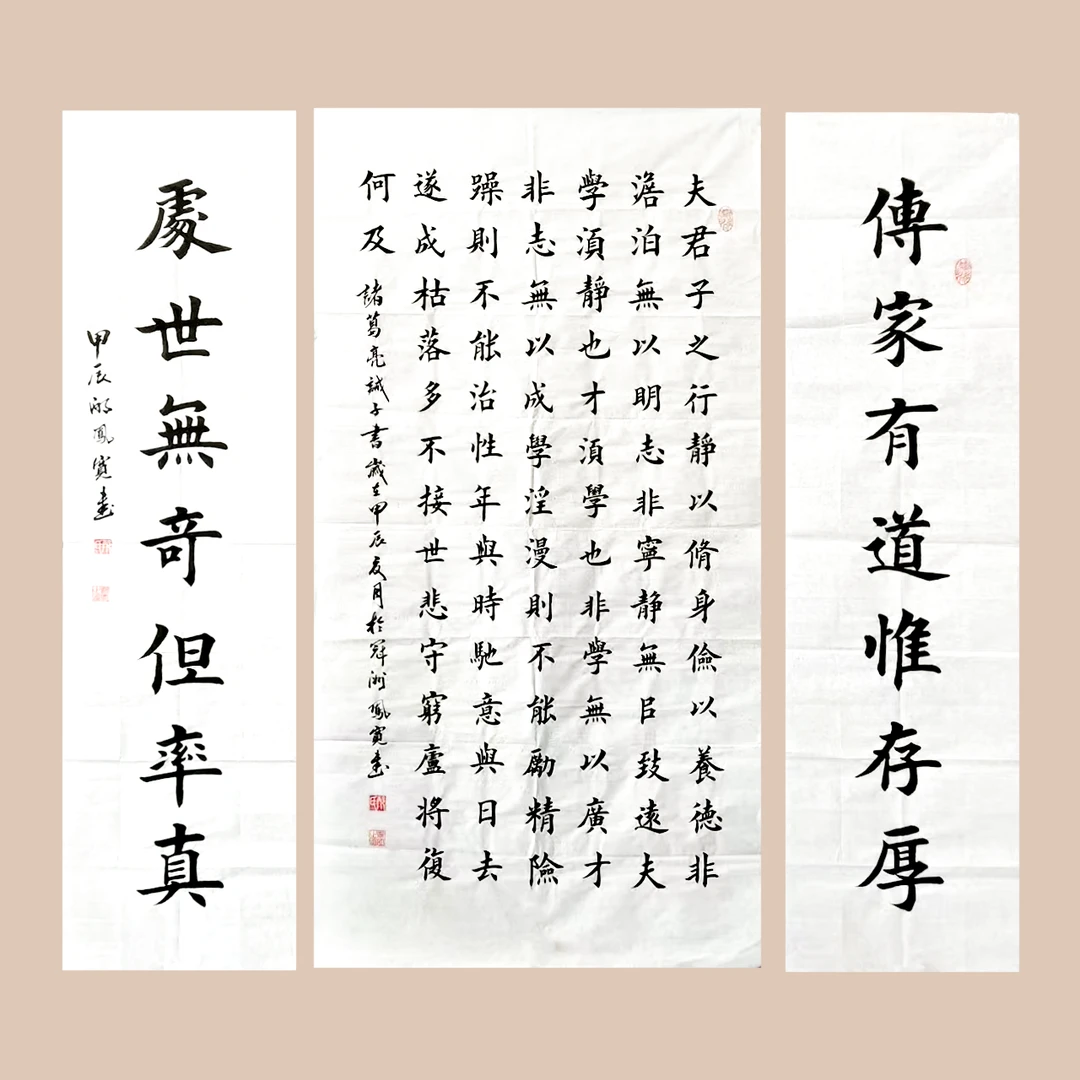 傳家有道惟存厚
夫君子之行靜以脩身儉以養德非
澹泊無以明志非寧靜無㠯致遠夫
學湏靜也才湏學也非學無以廣才
非志無以成學淫漫則不能勵精險
躁則不能治性年與時馳意與日去
遂成枯落多不接世悲守窮廬將復
何及
諸葛亮誡子書歲在甲辰夏月於冠洲鳳寬書
處世無奇但率真
甲辰鳳寬書